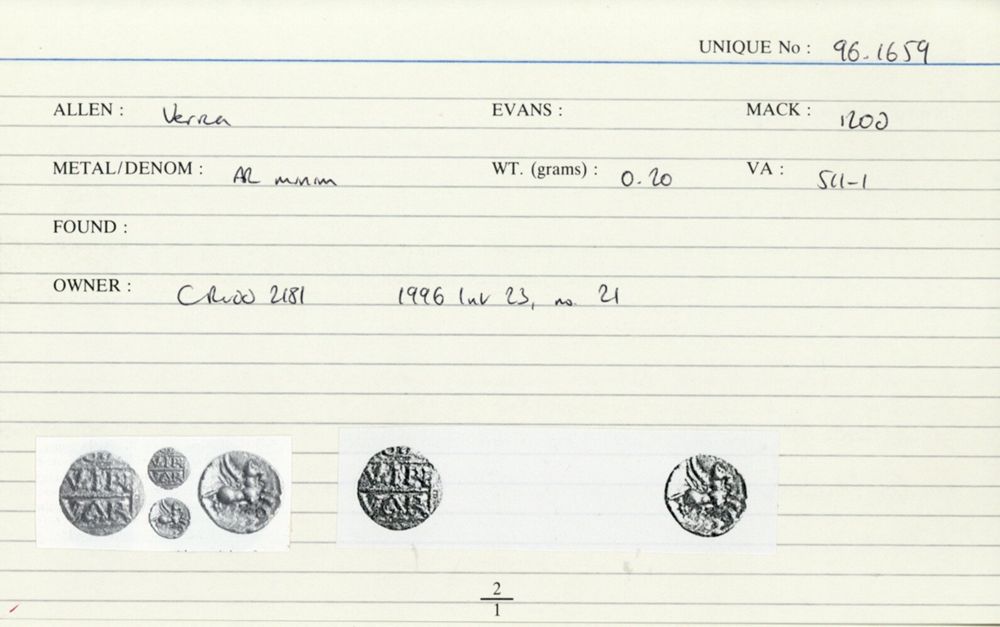 UNIQUE No : 96.1659
ALLEN : Verica EVANS : MACK : 120d
METAL/DENOM : AR minim WT. (grams) : 0.20 VA : 511-1
FOUND :
OWNER : CR 2181 1996 23, no. 21
VIRI
VAR
VIRI
VAR
VIRI
VAR
2
1